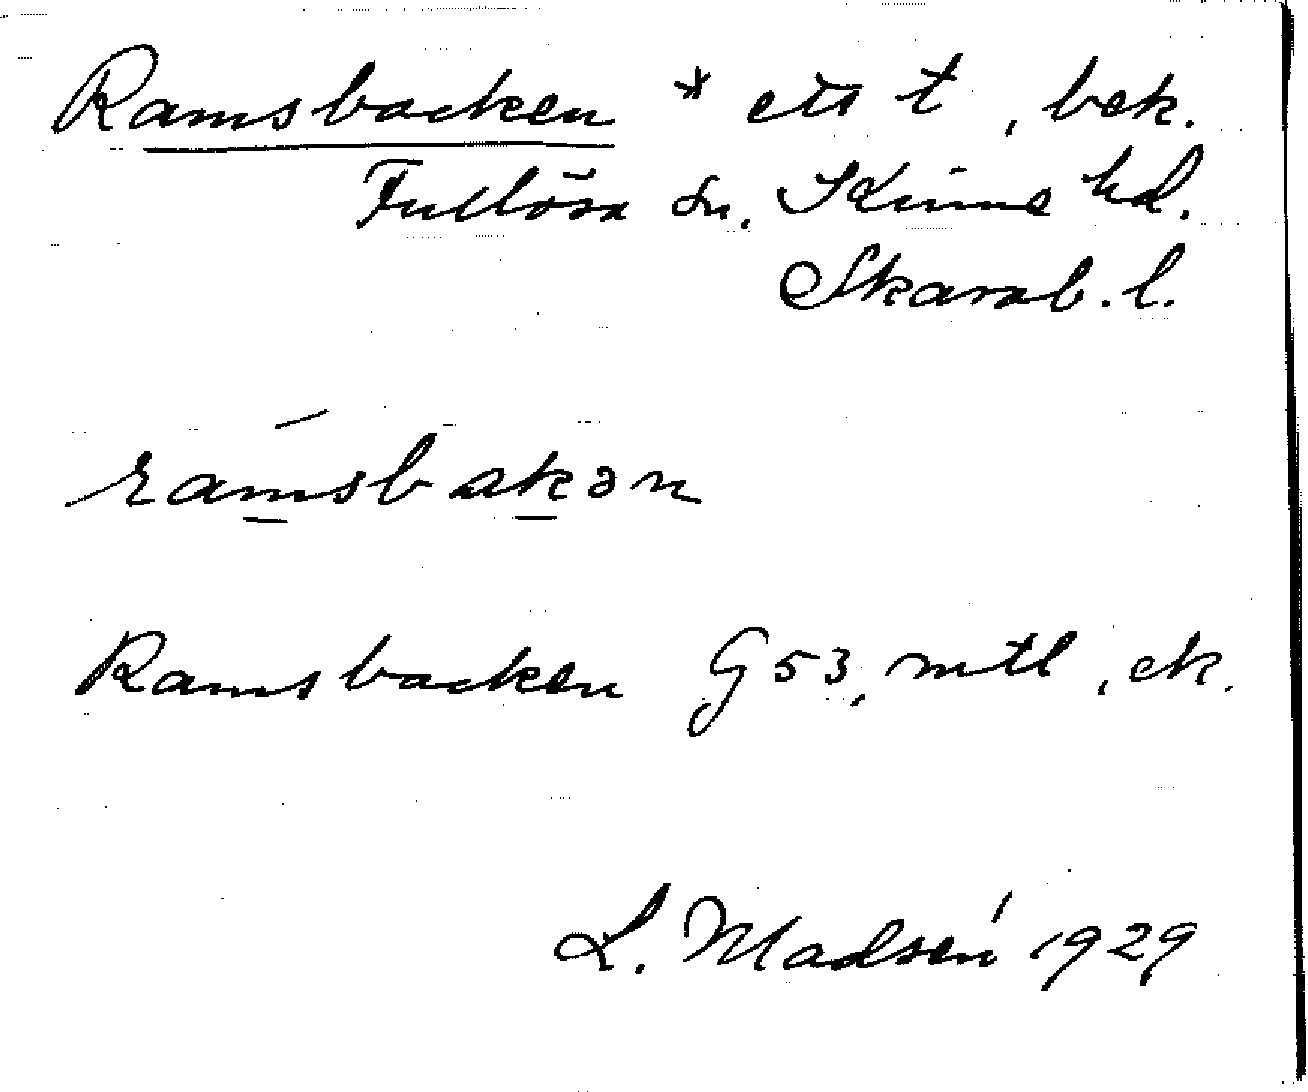 Ramsbacken * ett t, bek.
Fullösa sn. Kinne hd.
Skarab. l.
ramsbakən
Ramsbacken G 53, mtl, ek.
L. Madsén 1929